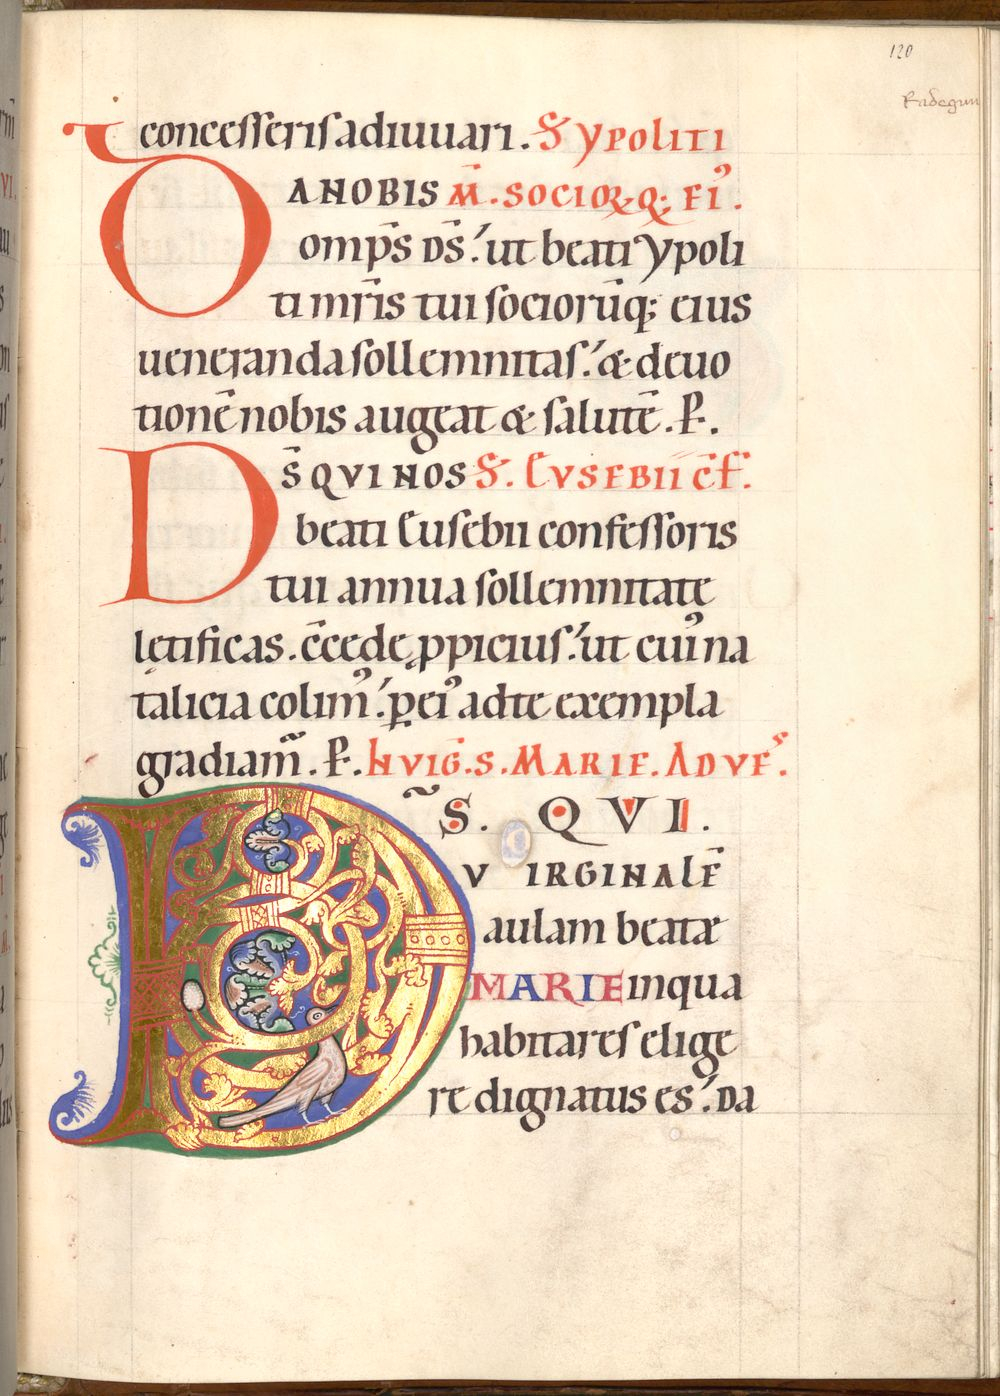 120
Radegun
concesseris adiuuari. S ypoliti
DA NOBIS M̄. SOCIORQ; EI᾿.
omp̄s ds̄: ut beati ypoli
ti mr̄is tui sociorūq; eius
ueneranda sollemnitas: & deuo
tionē nobis augeat & salutē. P̄.
Ds̄ QVI NOS S. EVSEBII c̄f̄.
beati Eusebii confessoris
tui annua sollemnitate
lętificas. c̄cede ꝓpicius: ut cui᾿ na
talicia colim᾿: ꝑ ei᾿ ad te exempla
gradiam̃. P̄. hVIG̅. S. MARIE. ADVE᾿.
Ds̃. QVI.
VIRGINALĒ
aulam beatae
MARIE in qua
habitares elige
re dignatus es: Da